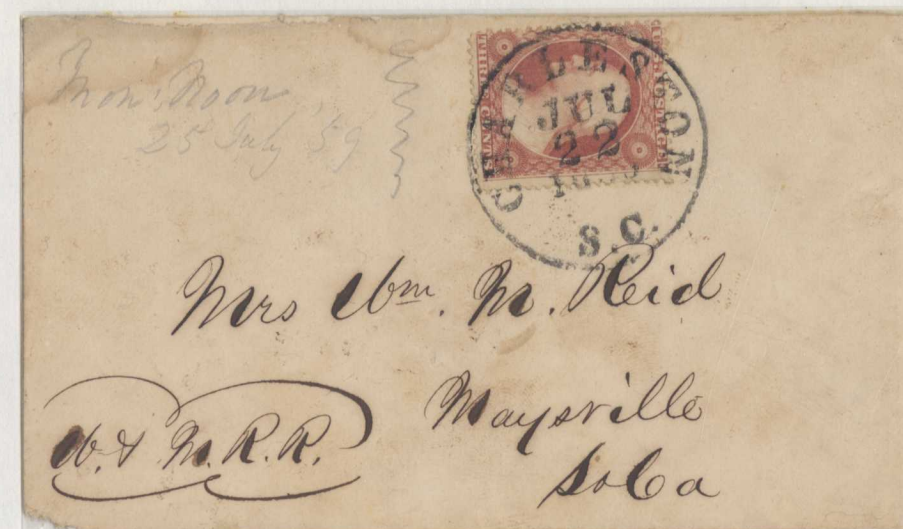 Mon. Noon
25 July '59
CHARLESTON
JUL
22
S.C.
Mrs Wm. M. Reid
Maysville
So Ca
W. & M. R. R.